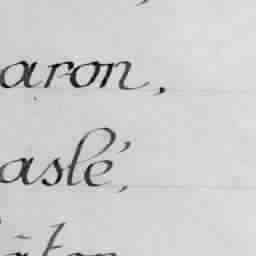 aron,
aslé,